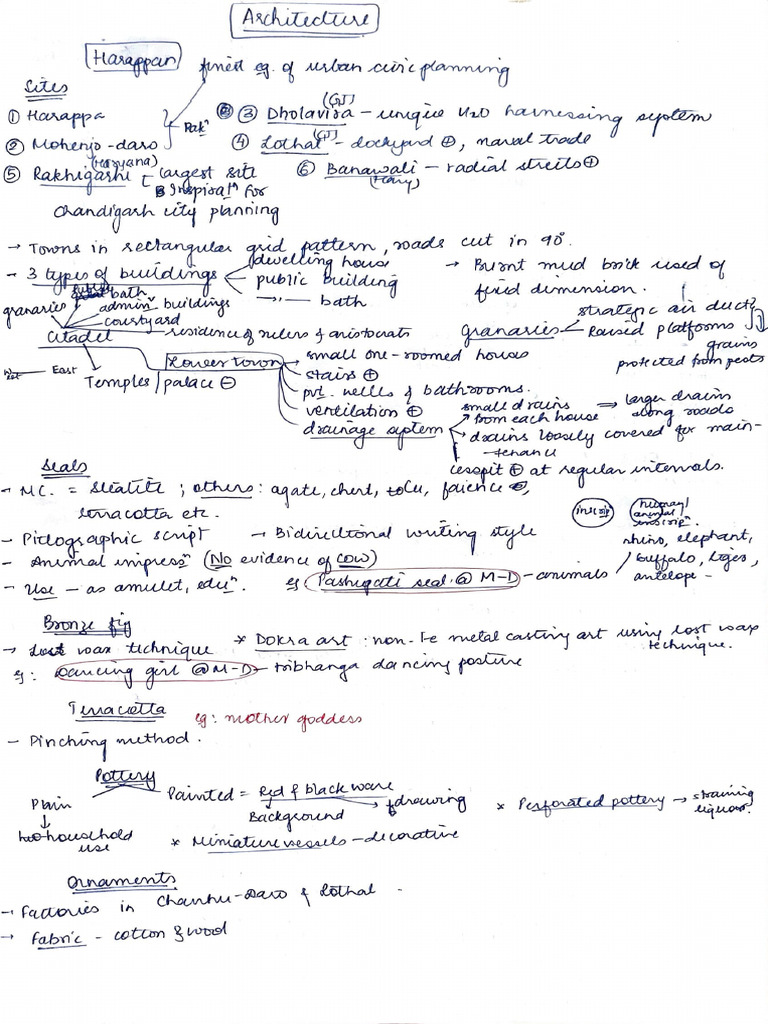 Architecture
Harappan
finest eg. of urban civic planning
Sites
① Harappa
② Mohenjo-daro
Pakⁿ
③ Dholavira (GJ) - unique H₂O harnessing system
④ Lothal (GJ) - dockyard ⊕, naval trade
⑤ Rakhigarhi (Haryana) [ largest site
Inspiraⁿ for
Chandigarh city planning
⑥ Banawali (Hary) - radial streets ⊕
→ Towns in rectangular grid pattern, roads cut in 90°.
- 3 types of buildings
dwelling house
public building
—"— bath
→ Burnt mud brick used of
fixed dimension.
granaries
bath
adminᵛ buildings
courtyard
Citadel
residence of rulers & aristocrats
West — East
Temples / palace ⊖
Granaries
strategic air ducts
Raised platforms
grains
protected from pests
Lower town
small one-roomed house
stairs ⊕
pvt. wells & bathrooms.
ventilation ⊕
drainage system
small drains
from each house
⇒ larger drains
along roads
drains loosely covered for main-
-tenance
cesspit ⊕ at regular intervals.
Seals
- MC. = Steatite ; others: agate, chert, faience,
terracotta etc.
- Pictographic script
→ Bidirectional writing style
- Animal impressⁿ (No evidence of cow)
- Use - as amulet, eduⁿ.
eg Pashupati seal @ M-D - animals
inscripⁿ
human/
animal
inscripⁿ.
rhino, elephant,
buffalo, tiger,
antelope -
Bronze fig
→ Lost wax technique
* Dokra art : non-Fe metal casting art using lost wax
technique.
eg: Dancing girl @ M-D - tribhanga dancing posture
Terracotta
eg: mother goddess
- Pinching method.
Pottery
Plain
↓
household
use
Painted = Red & black ware
Background
drawing
* Perforated pottery → straining
liquor.
* Miniature vessels - decorative
Ornaments
→ Factories in Chanhu-Daro & Lothal
→ Fabric - cotton & wool